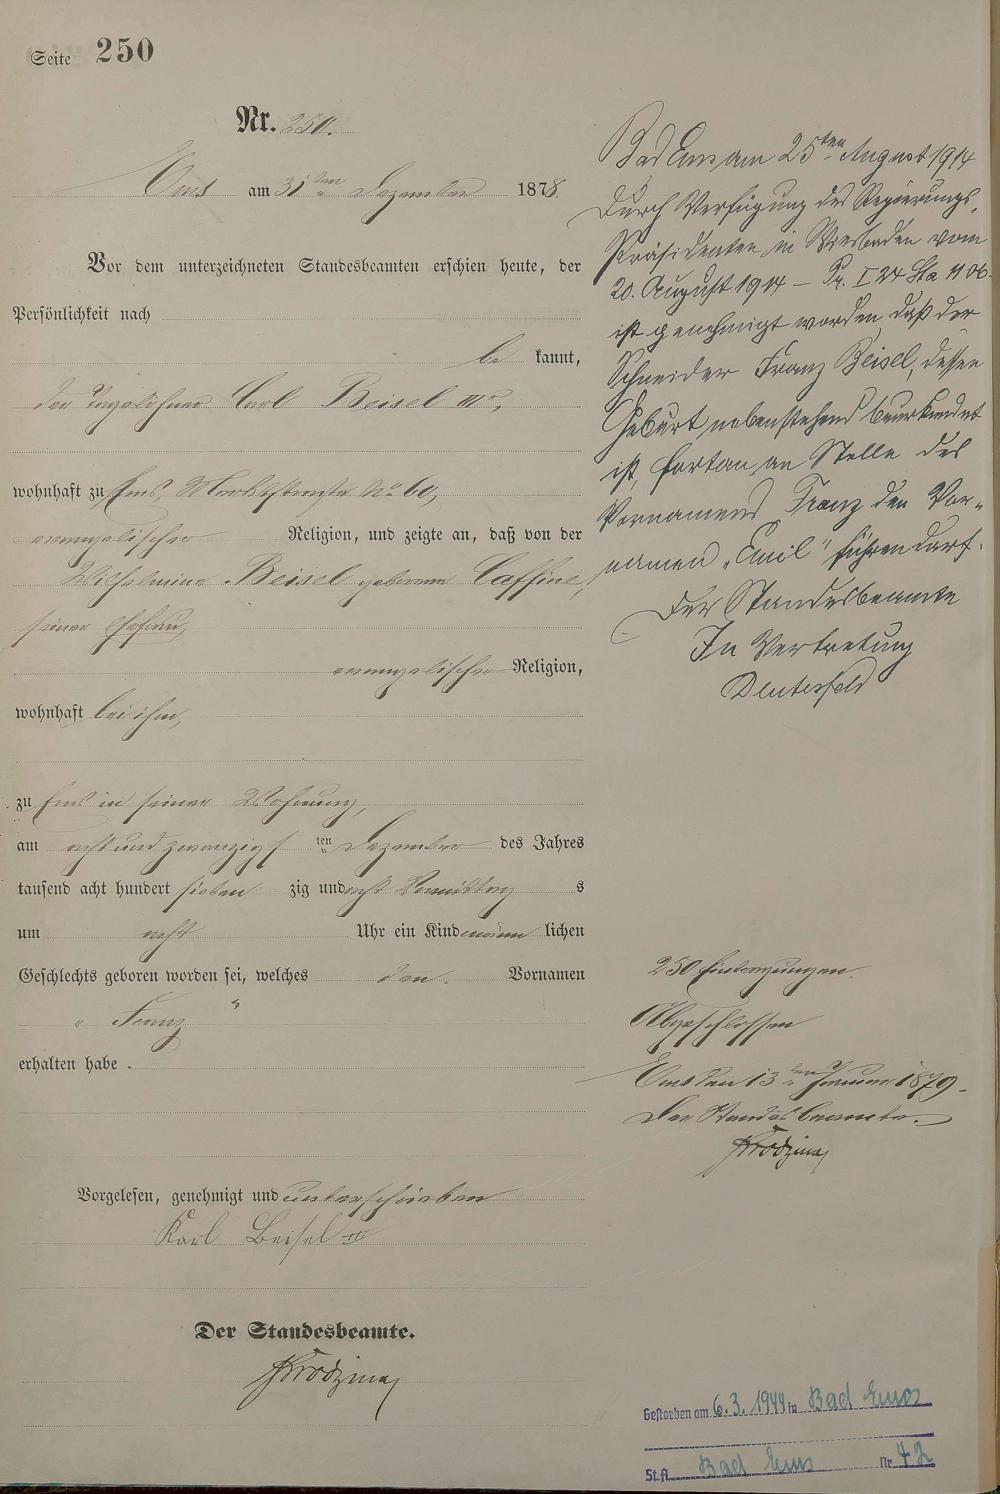 Seite 250
Nr. 250.
Ems am 31ten Dezember 1878.
Vor dem unterzeichneten Standesbeamten erschien heute, der
Persönlichkeit nach
be kannt,
der Tagelöhner Carl Beisel IIIr,
wohnhaft zu Ems, No 60,
evangelischer Religion, und zeigte an, daß von der
Wilhelmine Beisel geborene Caffine,
seiner Ehefrau,
evangelischer Religion,
wohnhaft bei ihm,
zu Ems in seiner Wohnung,
am acht und zwanzigsten Dezember des Jahres
tausend acht hundert sieben zig und acht Vormittag s
um acht Uhr ein Kind männ lichen
Geschlechts geboren worden sei, welches den Vornamen
„Franz“
erhalten habe.
Vorgelesen, genehmigt und unterschrieben
Karl Beisel III
Der Standesbeamte.
Bad Ems am 25ten August 1914
Durch Verfügung des Regierungs-
Präsidenten in Wiesbaden vom
20. August 1914 – Pr. I 24 Sta 1106
ist genehmigt worden, daß der
Schneider Franz Beisel, dessen
Geburt nebenstehend beurkundet
ist, fortan an Stelle des
Vornamens Franz den Vor-
namen „Emil“ führen darf.
Der Standesbeamte
In Vertretung
250 Eintragungen.
Abgeschlossen
Ems den 13ten Januar 1879.
Der Standesbeamte.
Gestorben am 6.3.1944 in Bad Ems
St.A. Bad Ems Nr. 42